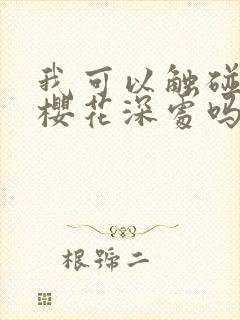 我可以触碰
櫻花深處吗
根號二